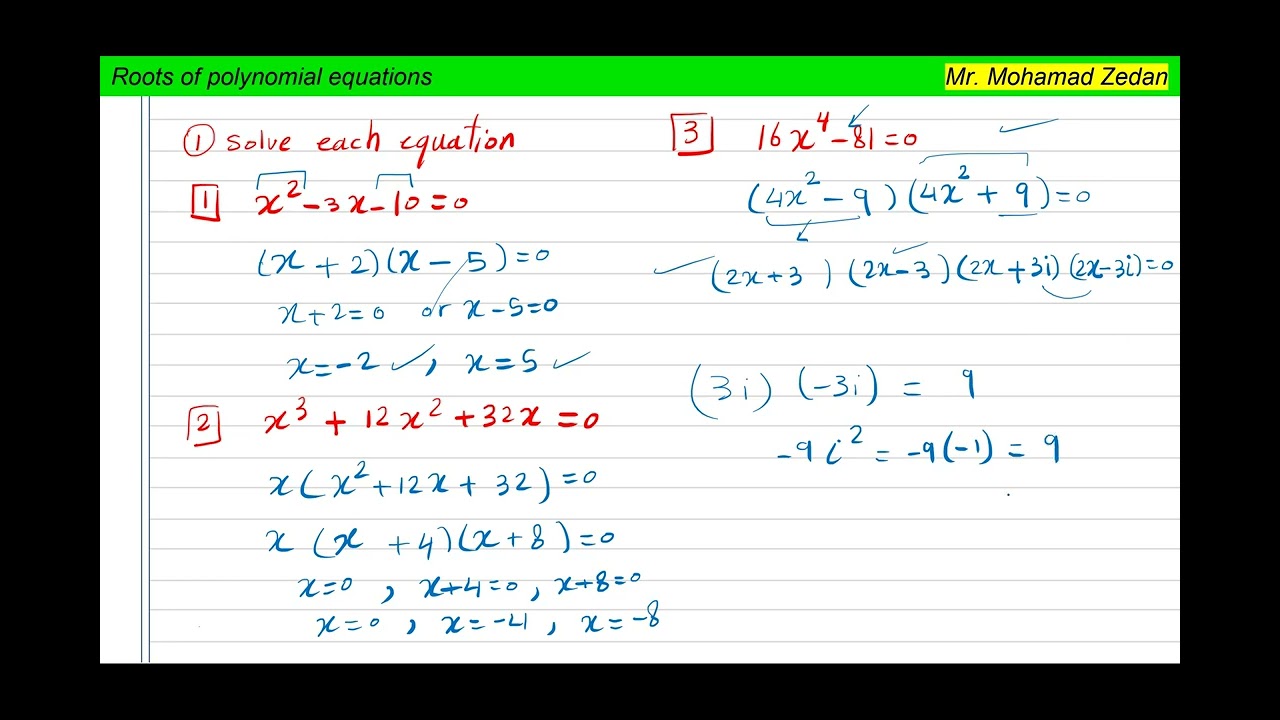 Roots of polynomial equations
Mr. Mohamad Zedan
① Solve each equation
1 x² - 3x - 10 = 0
(x + 2)(x - 5) = 0
x + 2 = 0 or x - 5 = 0
x = -2 ✓, x = 5 ✓
2 x³ + 12x² + 32x = 0
x(x² + 12x + 32) = 0
x (x + 4)(x + 8) = 0
x = 0 , x + 4 = 0 , x + 8 = 0
x = 0 , x = -4 , x = -8
3 16x⁴ - 81 = 0 ✓
(4x² - 9)(4x² + 9) = 0
✓ (2x + 3)(2x - 3)(2x + 3i)(2x - 3i) = 0
(3i) (-3i) = 9
-9i² = -9(-1) = 9